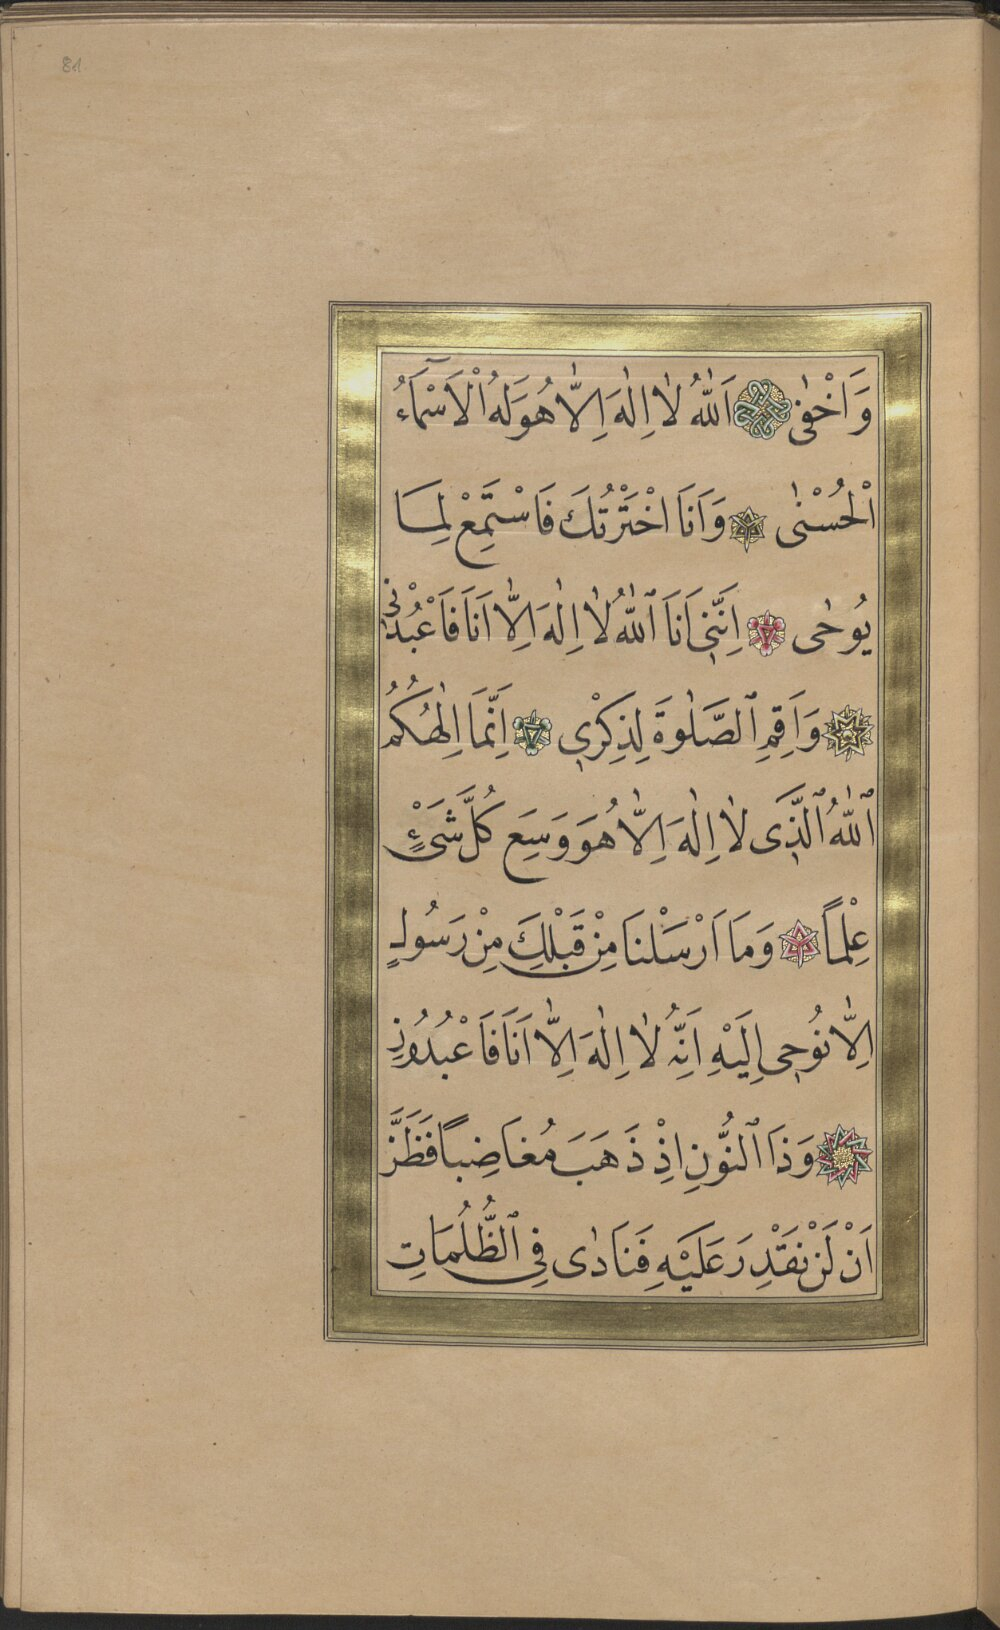 81
وَاَخْفٰى اَللّٰهُ لٰا اِلٰهَ اِلّٰا هُوَ لَهُ الْاَسْمَآءُ
الْحُسْنٰى وَاَنَا اخْتَرْتُكَ فَاسْتَمِعْ لِمَا
يُوحٰى اِنَّنِي اَنَا اللّٰهُ لٰا اِلٰهَ اِلّٰا اَنَا فَاعْبُدْنِي
وَاَقِمِ الصَّلٰوةَ لِذِكْرِي اِنَّمَا اِلٰهُكُمُ
اللّٰهُ الَّذِى لٰا اِلٰهَ اِلّٰا هُوَ وَسِعَ كُلَّ شَىْءٍ
عِلْمًا وَمَا اَرْسَلْنَا مِنْ قَبْلِكَ مِنْ رَسُولٍ
اِلّٰا نُوحِي اِلَيْهِ اَنَّهُ لٰا اِلٰهَ اِلّٰا اَنَا فَاعْبُدُونِ
وَذَا النُّونِ اِذْ ذَهَبَ مُغَاضِبًا فَظَنَّ
اَنْ لَنْ نَقْدِرَ عَلَيْهِ فَنَادٰى فِي الظُّلُمَاتِ